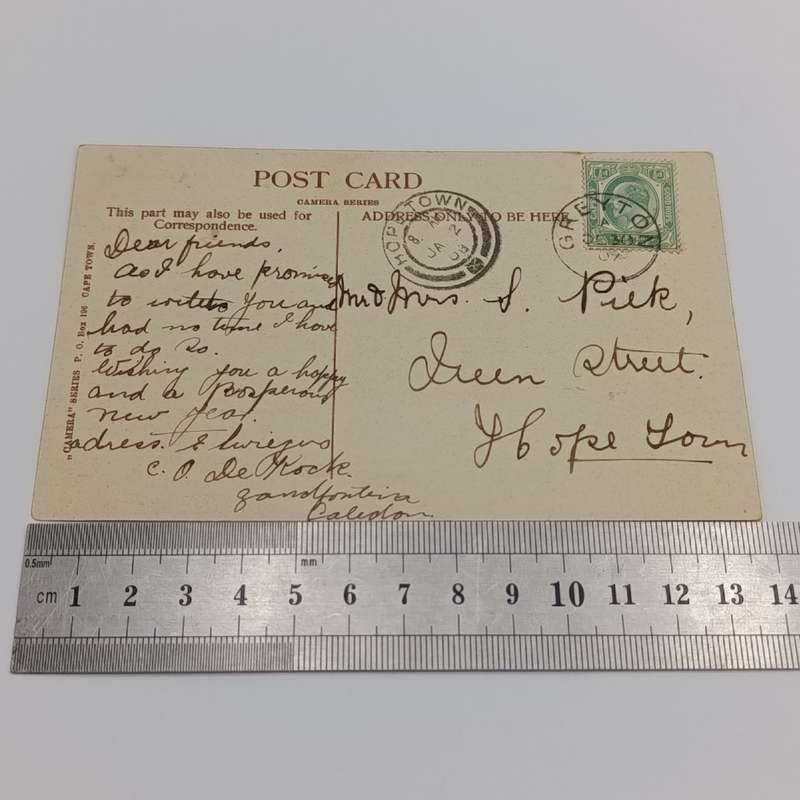 POST CARD
CAMERA SERIES
This part may also be used for
Correspondence.
ADDRESS ONLY TO BE HERE
HOPETOWN
8 AM
JA 2
09
GREYTON
Dear friends.
As I have promised
to write you and
had no time I have
to do so.
Wishing you a happy
and a Prosperous
new year.
adress.
C. O. De Kock.
Zandfontein
Caledon.
Mr & Mrs. S. Piek,
Green Street.
Hope Town
"CAMERA" SERIES P. O. Box 196 CAPE TOWN.
0.5mm
mm
cm 1 2 3 4 5 6 7 8 9 10 11 12 13 14